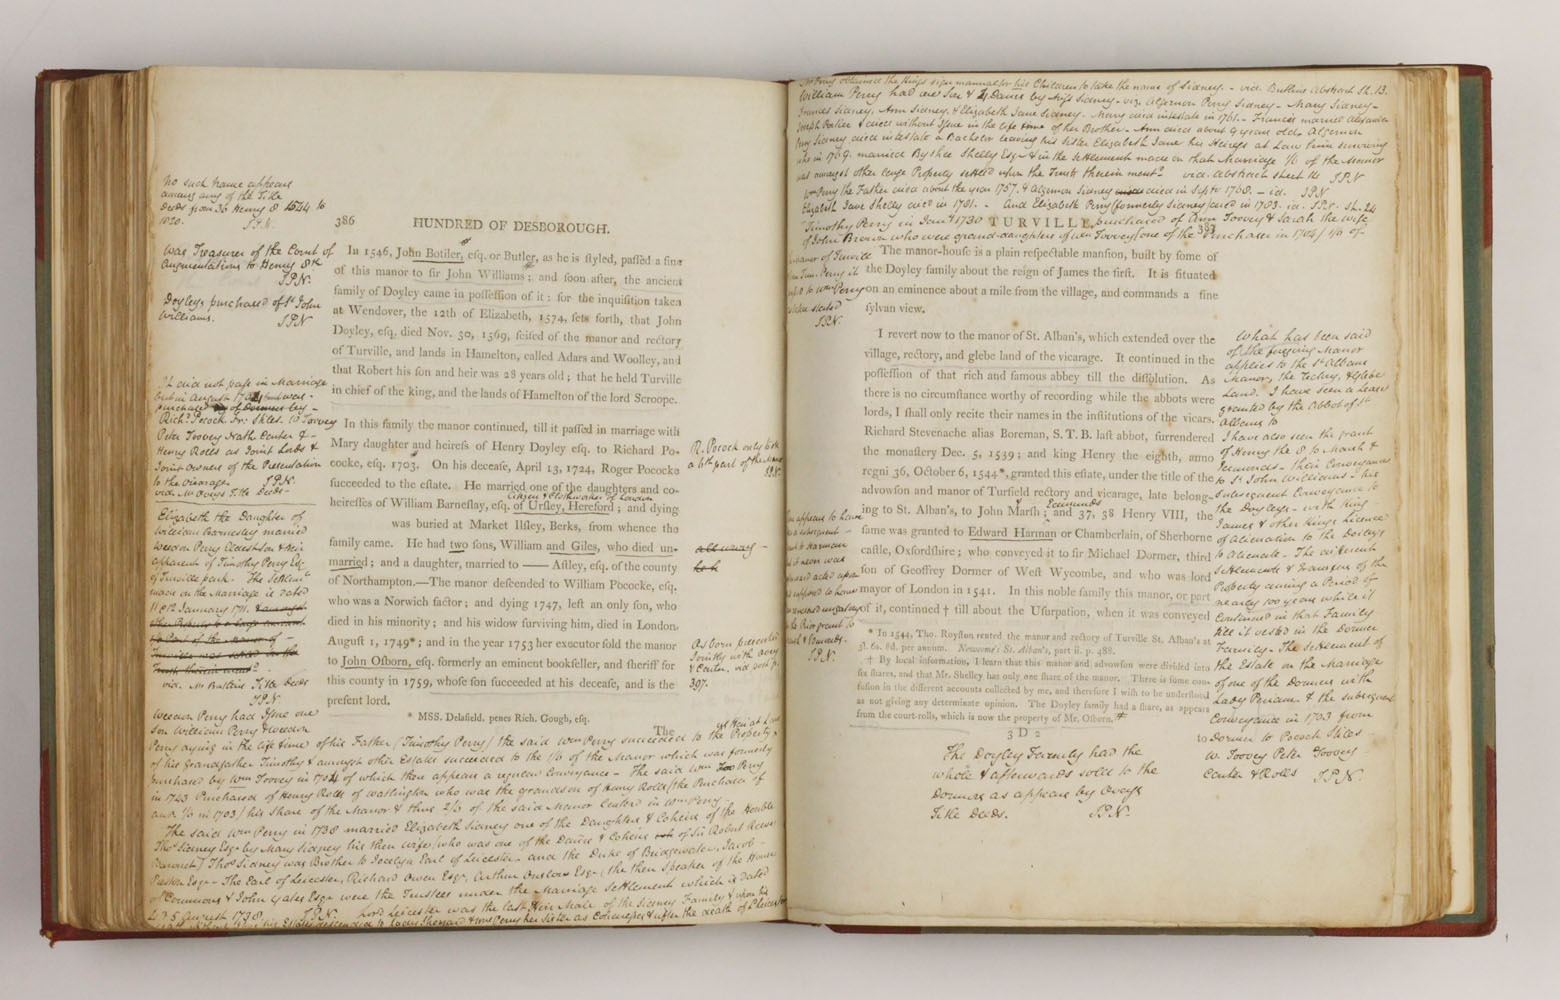 No such name appears
among any of the Title
Deeds from 36 Henry 8 1544 to
1820. J P N.
Was Treasurer of the Court of
Augmentations to Henry 8th
J P N.
Doyleys purchased of Sr John
Williams. J P N
It did not pass in Marriage
but in August 1704 was
purchased of Dormer by
Richd. Pocock Jnr: Skles. W Toovey
Peter Toovey Nath Center &
Henry Rolls as Joint Lords &
Joint Owners of the Presentation
to the vicarage. J P N.
vid. Mr Oveys Title Deeds
Elizabeth the Daughter of
William Barnesley married
Weedon Perry Eldest Son & Heir
apparent of Timothy Perry Esq
of Turville park. The Settlemt
made on the Marriage is dated
11 & 12 January 1711. & amongst
other
part of the Manor of
Turville was settled on the
Trusts therein mentd.
vid. Mr Butlins Title Deeds
J P N
Weedon Perry had Issue one
Son William Perry & Weedon
386 HUNDRED OF DESBOROUGH.
In 1546, John Botiler, esq. or Butler, as he is styled, passed a fine
of this manor to sir John Williams; and soon after, the ancient
family of Doyley came in possession of it: for the inquisition taken
at Wendover, the 12th of Elizabeth, 1574, sets forth, that John
Doyley, esq. died Nov. 30, 1569, seised of the manor and rectory
of Turville, and lands in Hamelton, called Adars and Woolley, and
that Robert his son and heir was 28 years old; that he held Turville
in chief of the king, and the lands of Hamelton of the lord Scroope.
In this family the manor continued, till it passed in marriage with
Mary daughter and heiress of Henry Doyley esq. to Richard Po-
cocke, esq. 1703. On his decease, April 13, 1724, Roger Pococke
succeeded to the estate. He married one of the daughters and co-
Citizen & Clothworker of London
heiresses of William Barneslay, esq. of Ursley, Hereford; and dying
was buried at Market Ilsley, Berks, from whence the
family came. He had two sons, William and Giles, who died un-
married; and a daughter, married to —— Astley, esq. of the county
of Northampton.—The manor descended to William Pococke, esq.
who was a Norwich factor; and dying 1747, left an only son, who
died in his minority; and his widow surviving him, died in London,
August 1, 1749*; and in the year 1753 her executor sold the manor
to John Osborn, esq. formerly an eminent bookseller, and sheriff for
this county in 1759, whose son succeeded at his decease, and is the
present lord.
* MSS. Delafield. penes Rich. Gough, esq.
The
R. Pocock only took
a 6th part of the Manor
J P N.
Osborn presented
Jointly with Ovey
& Center. vid post p.
397.
Perry dying in the life time of his Father (Timothy Perry) the said Wm Perry succeeded to the Property
of his Grandfather Timothy & amongst other Estates succeeded to the 1/6 of the Manor which was formerly
purchased by Wm Toovey in 1704 of which there appears a regular Conveyance - The said Wm Perry
in 1743 Purchased of Henry Rolls of Watlington who was the grandson of Henry Rolls (the Purchaser of
one 1/6 in 1703) his Share of the Manor & thus 2/6 of the said Manor Centerd in Wm Perry -
The said Wm Perry in 1738 married Elizabeth Sidney one of the Daughters & Coheirs of the Honble
Thos Sidney Esqr by Mary Sidney his then Wife, who was one of the Daurs & Coheirs of Sir Robert Reeve
Baronet) Thos Sidney was Brother to Jocelyn Earl of Leicester and the Duke of Bridgewater, Jacob
Preston Esqr - The Earl of Leicester, Richard Owen Esqr. Arthur Onslow Esqr (the then Speaker of the House
of Commons & John Yates Esqr were the Trustees under the Marriage Settlement which is dated
4 & 5 August 1738. J P N. Lord Leicester was the last Heir Male of the Sidney Family & upon his
his Estates descended to Lady Sherard & Mrs Perry her Sister as Coheiresses & after the death of
Mr Perry obtained the Kings sign manual for his Children to take the name of Sidney. - vid. Butlins Abstract Sh. 13.
William Perry had one Son & 4 Daurs by Miss Sidney - viz. Algernon Perry Sidney - Mary Sidney -
Frances Sidney, Ann Sidney, & Elizabeth Jane Sidney. Mary died intestate in 1761. - Frances married Alexander
Joseph Parker & died without Issue in the life time of her Brother - Ann died about 9 years old. Algernon
Perry Sidney died intestate a Bachelor leaving his Sister Elizabeth Jane his Heiress at Law him surviving
who in 1769. married Byshee Shelly Esqr & in the Settlement made on that Marriage 1/6 of the Manor
was amongst other large Property settled upon the Trusts therein mentd. vid. Abstract sheet 14 J P N
Wm Perry the Father died about the year 1757. & Algernon Sidney died in Septr 1768. - id. J P N
Elizabeth Jane Shelly died in 1781. - And Elizabeth Perry (formerly Sidney) died in 1783. id. J P N. Sh. 24
Timothy Perry in Jany 1730 purchased of Ann Toovey & Sarah the wife
of John Brown who were grand-daughters of Wm Toovey (one of the Purchasers in 1704) 1/6 of
TURVILLE. 387
The manor-house is a plain respectable mansion, built by some of
the Doyley family about the reign of James the first. It is situated
on an eminence about a mile from the village, and commands a fine
sylvan view.
I revert now to the manor of St. Alban's, which extended over the
village, rectory, and glebe land of the vicarage. It continued in the
possession of that rich and famous abbey till the dissolution. As
there is no circumstance worthy of recording while the abbots were
lords, I shall only recite their names in the institutions of the vicars.
Richard Stevenache alias Boreman, S. T. B. last abbot, surrendered
the monastery Dec. 5, 1539; and king Henry the eighth, anno
regni 36, October 6, 1544*, granted this estate, under the title of the
advowson and manor of Turfield rectory and vicarage, late belong-
& Edmunds
ing to St. Alban's, to John Marsh; and 37, 38 Henry VIII, the
same was granted to Edward Harman or Chamberlain, of Sherborne
castle, Oxfordshire; who conveyed it to sir Michael Dormer, third
son of Geoffrey Dormer of West Wycombe, and who was lord
mayor of London in 1541. In this noble family this manor, or part
of it, continued † till about the Usurpation, when it was conveyed
* In 1544, Tho. Royston rented the manor and rectory of Turville St. Alban's at
3l. 6s. 8d. per annum. Newcome's St. Alban's, part ii. p. 488.
† By local information, I learn that this manor and advowson were divided into
six shares, and that Mr. Shelley has only one share of the manor. There is some con-
fusion in the different accounts collected by me, and therefore I wish to be understood
as not giving any determinate opinion. The Doyley family had a share, as appears
from the court-rolls, which is now the property of Mr. Osborn.
3 D 2
The Doyley Family had the
whole & afterwards sold to the
Dormers as appears by Oveys
Title Deeds. J P N.
manor of Turville
J P N.
appears to have
J P N.
What has been said
of the foregoing Manor
applies to the St Albans
Manor, the Rectory, & Glebe
Land. I have seen a Lease
granted by the Abbot of St
Albans to
I have also seen the grant
of Henry the 8 to Marsh &
Edmunds - their Conveyance
to Sr John Williams - his
subsequent Conveyance to
the Doyleys - with King
James & other Kings Licence
of Alienation to the Doyleys
to Alienate - The different
Settlements & Transfers of the
Property during a Period of
nearly 100 years while it
Continued in that Family
till it vested in the Dormer
Family - The Settlement of
the Estate on the Marriage
of one of the Dormers with
Lady Periam & the subsequent
Conveyance in 1703 from
to Dormer to Pocock Stiles -
W. Toovey Peter Toovey -
Center & Rolls J P N.